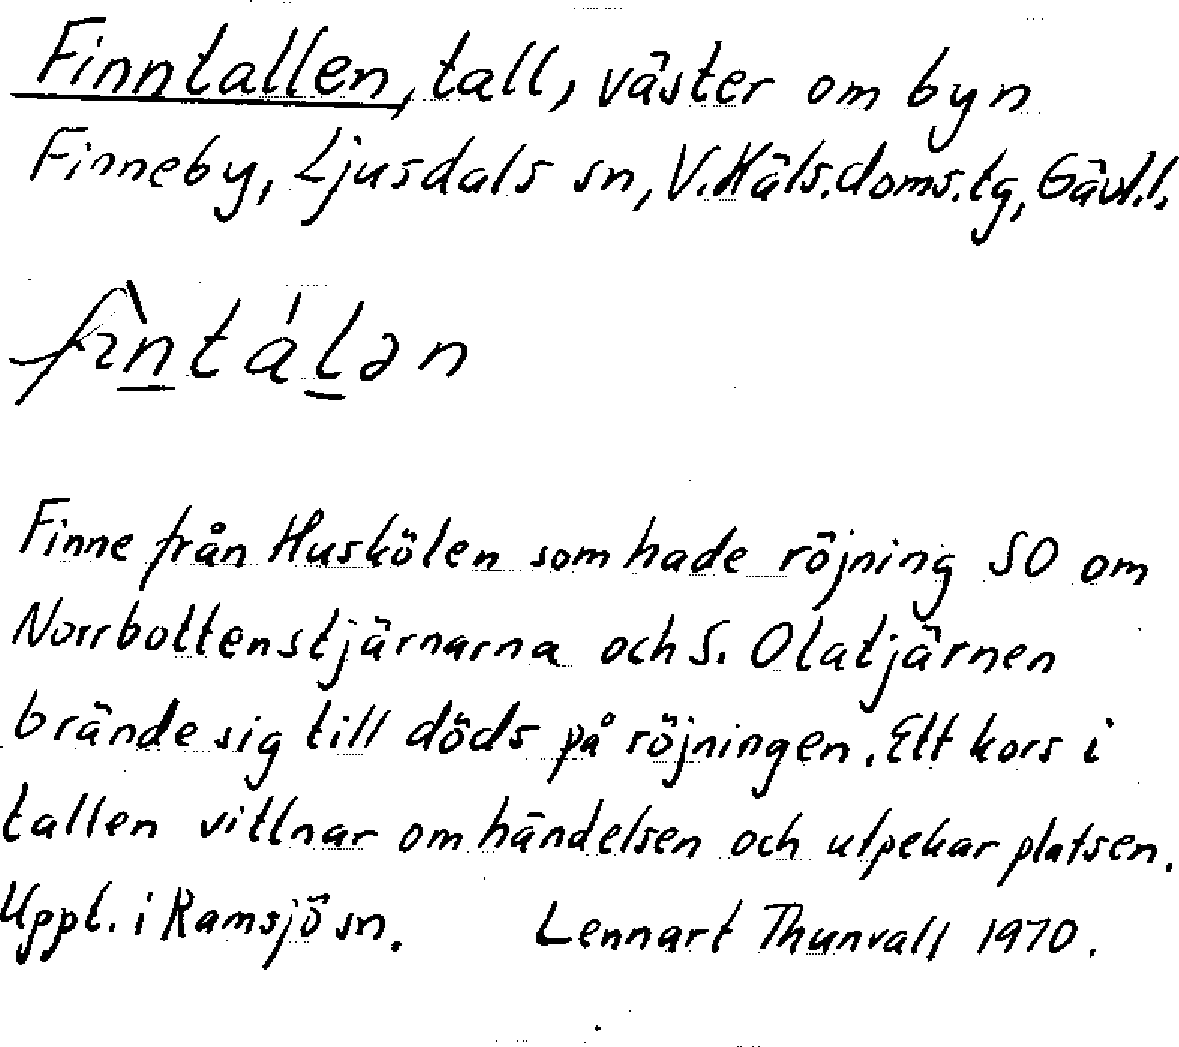 Finntallen, tall, väster om byn
Finneby, Ljusdals sn, V. Häls. doms. tg, Gävl.l.
fìntálən
Finne från Huskölen som hade röjning SO om
Norrbottenstjärnarna och S. Olatjärnen
brände sig till döds på röjningen. Ett kors i
tallen vittnar om händelsen och utpekar platsen.
Uppt. i Ramsjö sn. Lennart Thunvall 1970.